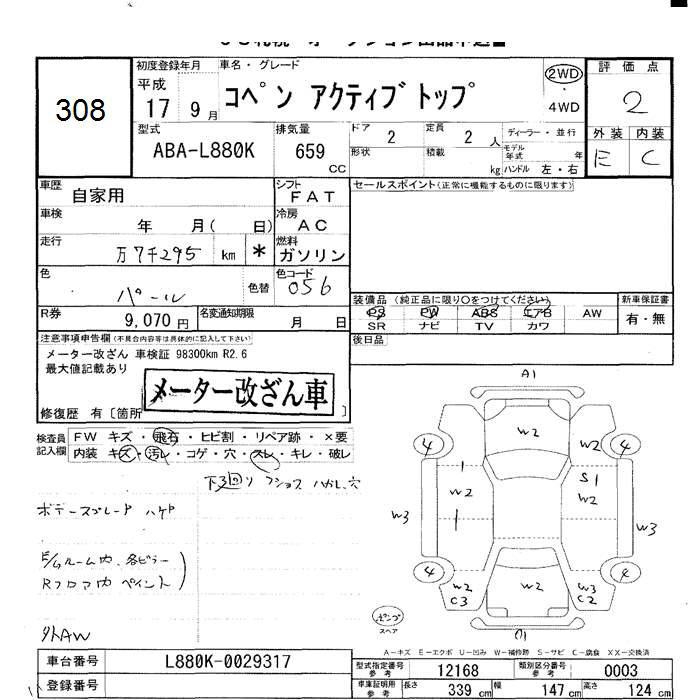 308
初度登録年月
平成
17 9月
車名・グレード
コペン アクティブトップ
2WD
・
4WD
評価点
2
外装 内装
E C
型式
ABA-L880K
排気量
659
CC
ドア
2
定員
2 人
形状
積載
kg
ディーラー・並行
モデル年式 年
ハンドル 左・右
車歴
自家用
シフト
FAT
車検
年 月( 日)
冷房
AC
走行
万7千295 km *
燃料
ガソリン
色
パール
色替
色コード
056
R券
9,070円
名変通知期限
月 日
セールスポイント(正常に機能するものに限ります)
装備品 (純正品に限り○をつけてください)
PS PW ABS エアB AW
SR ナビ TV カワ
新車保証書
有・無
後日品
注意事項申告欄(不具合内容等は具体的に記入して下さい)
メーター改ざん 車検証 98300km R2.6
最大値記載あり
メーター改ざん車
修復歴 有〔箇所 〕
検査員
記入欄
FW キズ・飛石・ヒビ割・リペア跡・×要
内装 キズ・汚レ・コゲ・穴・スレ・キレ・破レ
下廻り
ボデースプレード ハゲ
E/ムルーム内、各ピラー
Rフロア内 ペイント
外AW
A1
W2
4 4
W2
1
S1
W2
W3
W2
1
W2
W3
4 4
W2
C3
W2
W3
C2
スペア
A-キズ E-エクボ U-凹み W-補修跡 S-サビ C-腐食 XX-交換済
車台番号
L880K-0029317
登録番号
型式指定番号
参考
12168
類別区分番号
参考
0003
車庫証明用
参考
長さ 339 cm
幅 147 cm
高さ 124 cm